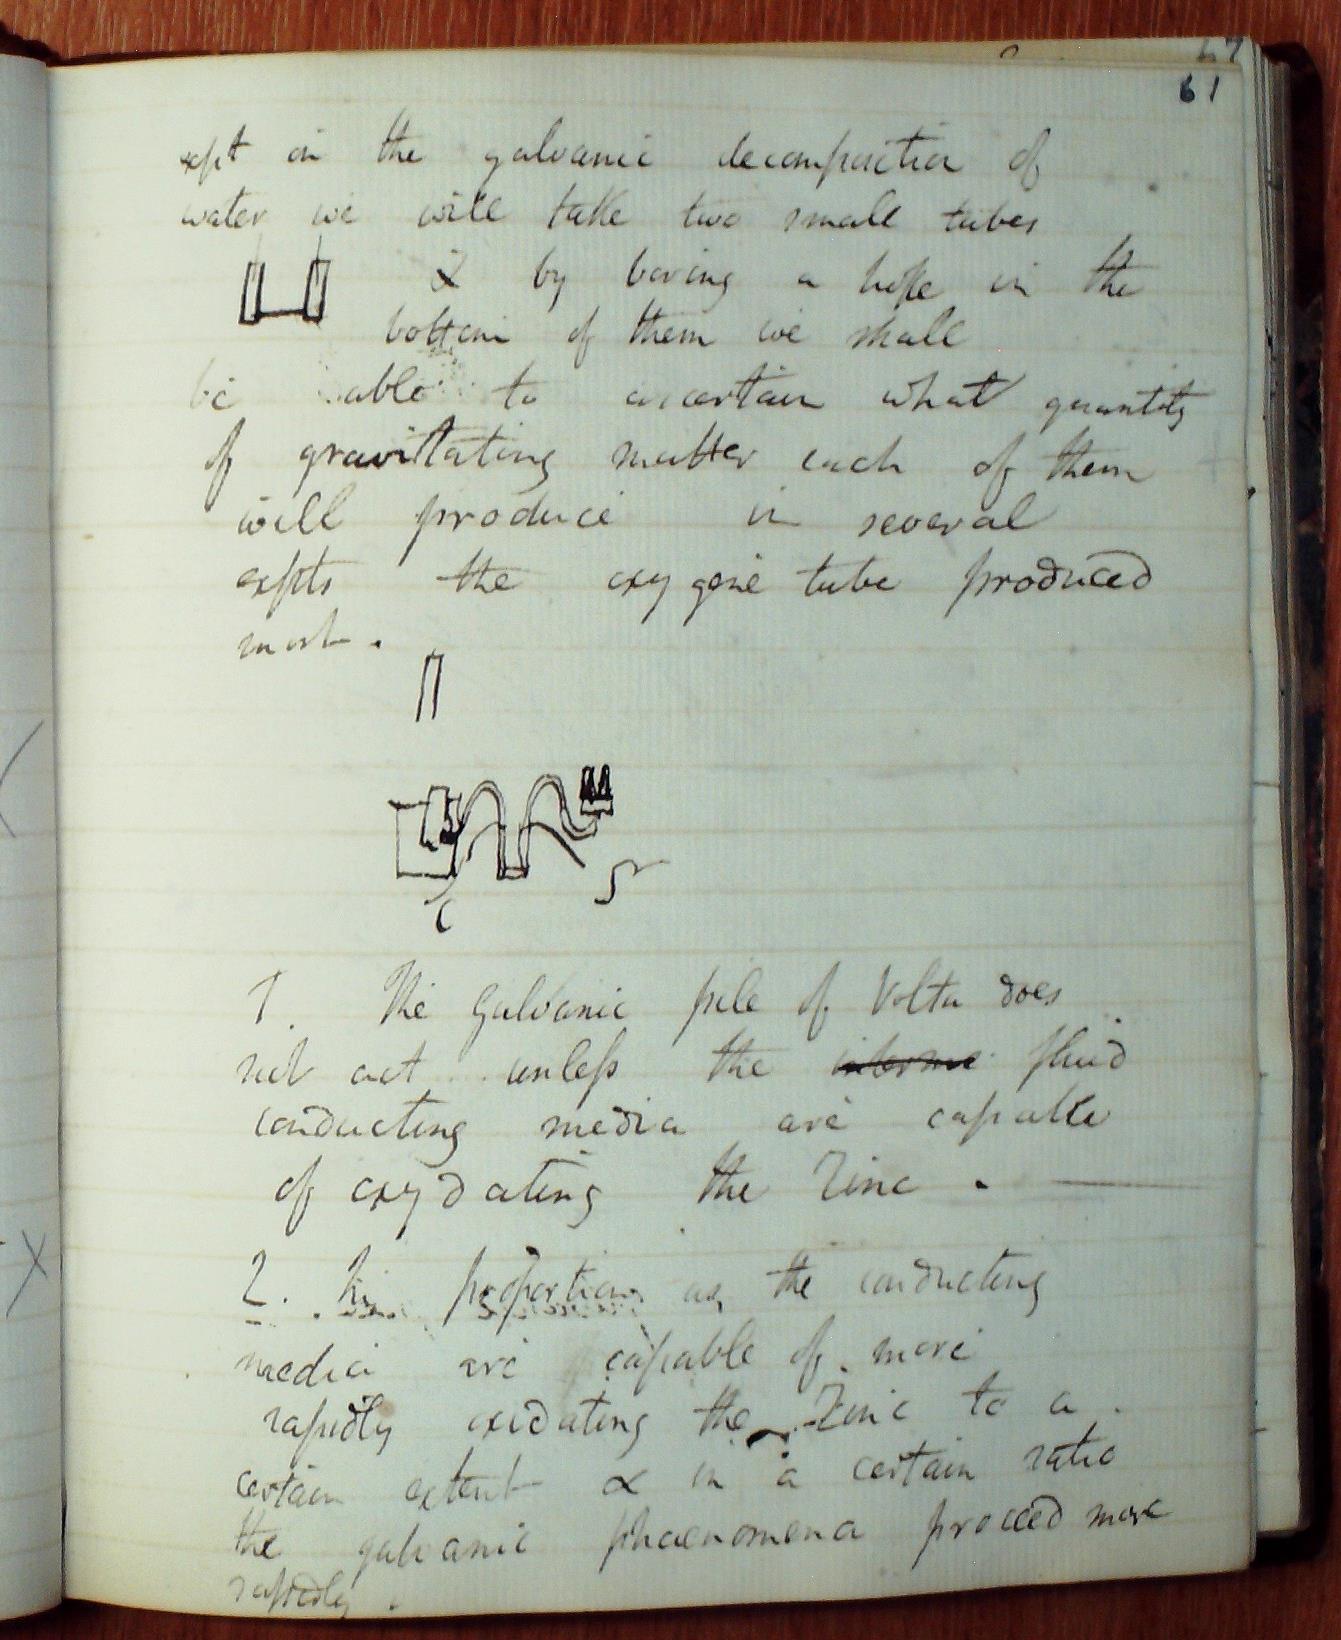 67
61
expt on the galvanic decomposition of
water we will take two small tubes
& by boring a hole in the
bottom of them we shall
be able to ascertain what quantity
of gravitating matter each of them
will produce in several
expts the oxygene tube produced
most.
1. The Galvanic pile of Volta does
not act unless the interme fluid
conducting media are capable
of oxydating the Zinc.
2. In proportion as the conducting
media are capable of more
rapidly oxidating the Zinc to a
certain extent & in a certain ratio
the galvanic phaenomena proceed more
rapidly.